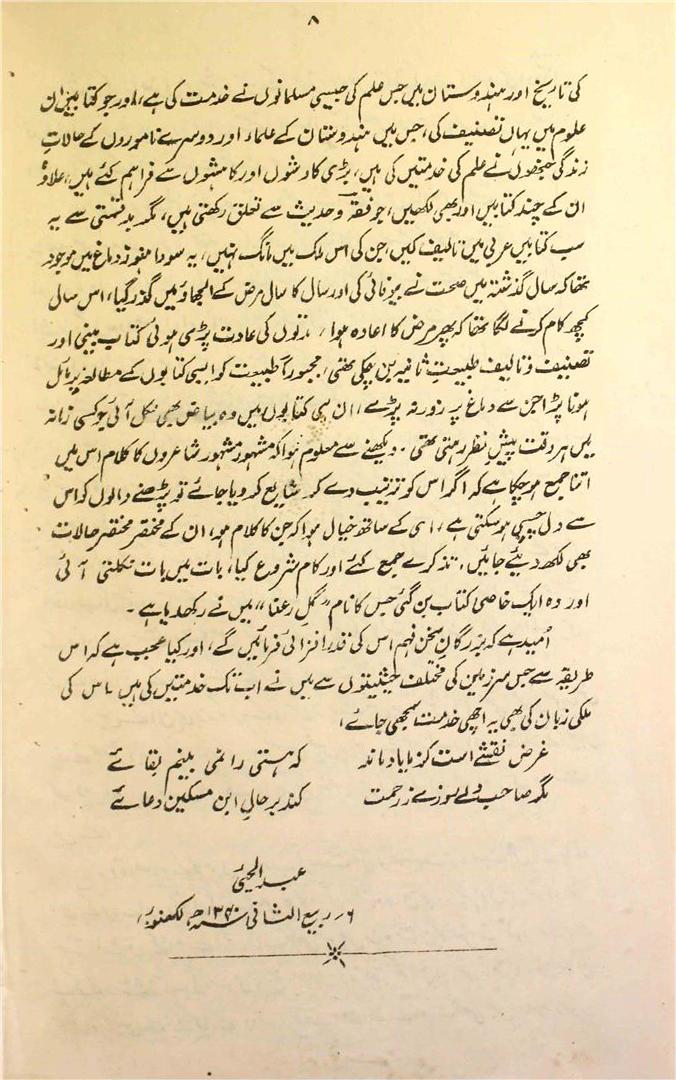 ۸
کی تاریخ اور ہندوستان میں جس علم کی جیسی مسلمانوں نے خدمت کی ہے، اور جو کتابیں ان
علوم میں یہاں تصنیف کی، جس میں ہندوستان کے علماء اور دوسرے ناموروں کے حالاتِ
زندگی جنھوں نے علم کی خدمتیں کی ہیں، بڑی کاوشوں اور کاہشوں سے فراہم کئے ہیں، علاوہ
ان کے چند کتابیں اور بھی لکھیں، جو فقہ و حدیث سے تعلق رکھتی ہیں، مگر بدقسمتی سے یہ
سب کتابیں عربی میں تالیف کیں، جن کی اس ملک میں مانگ نہیں، یہ سودا ہنوز دماغ میں موجود
تھا کہ سال گذشتہ میں صحت نے بیوفائی کی اور سال کا سال مرض کے الجھاؤ میں گذر گیا، اس سال
کچھ کام کرنے لگا تھا کہ پھر مرض کا اعادہ ہوا، مدتوں کی عادت پڑی ہوئی کتاب بینی اور
تصنیف و تالیف طبیعتِ ثانیہ بن چکی تھی، مجبوراً طبیعت کو ایسی کتابوں کے مطالعہ پر مائل
ہونا پڑا جن سے دماغ پر زور نہ پڑے، ان ہی کتابوں میں وہ بیاض بھی نکل آئی جو کسی زمانہ
میں ہر وقت پیشِ نظر رہتی تھی۔ دیکھنے سے معلوم ہوا کہ مشہور مشہور شاعروں کا کلام اس میں
اتنا جمع ہو چکا ہے کہ اگر اس کو ترتیب دے کر شایع کر دیا جائے تو پڑھنے والوں کو اس
سے دل چسپی ہو سکتی ہے، اسی کے ساتھ خیال ہوا کہ جن کا کلام ہو، ان کے مختصر مختصر حالات
بھی لکھ دیئے جائیں، تذکرے جمع کئے اور کام شروع کیا، بات میں بات نکلتی آئی
اور وہ ایک خاصی کتاب بن گئی جس کا نام "گل رعنا" میں نے رکھدیا ہے۔
اُمید ہے کہ بزرگانِ سخن فہم اس کی قدر افزائی فرمائیں گے، اور کیا عجب ہے کہ اس
طریقہ سے جس سرزمین کی مختلف حیثیتوں سے میں نے اب تک خدمتیں کی ہیں، اس کی
ملکی زبان کی بھی یہ اچھی خدمت سمجھی جائے،
غرض نقشے است کز ما یاد ماند کہ ہستی را نمی بینم بقائے
مگر صاحب دلے روزے ز رحمت کند بر حالِ ابن مسکین دعائے
عبد الحئی
۶ ربیع الثانی ۱۳۴۰ھ لکھنؤ،